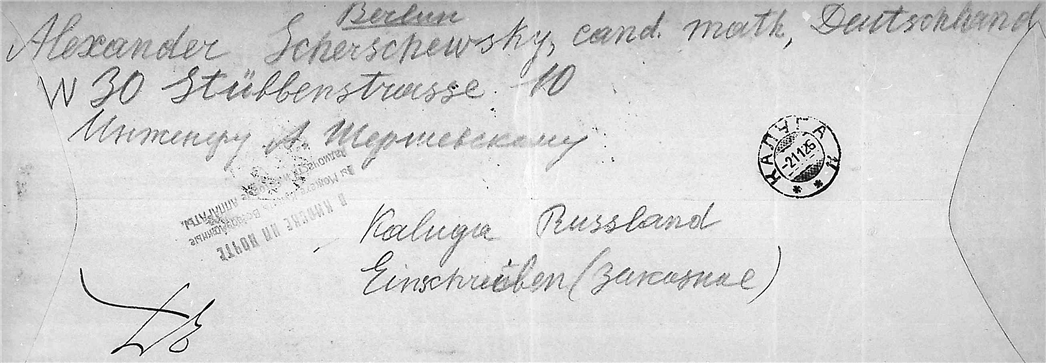 Berlin
Alexander Scherschewsky, cand. math, Deutschland
W 30 Stübbenstrasse 10
Инженеру А. Шершевскому
КАЛУГА
-21126
В КИОСКЕ ИЛИ ПОЧТЕ
Kaluga Russland
Einschreiben (заказное)